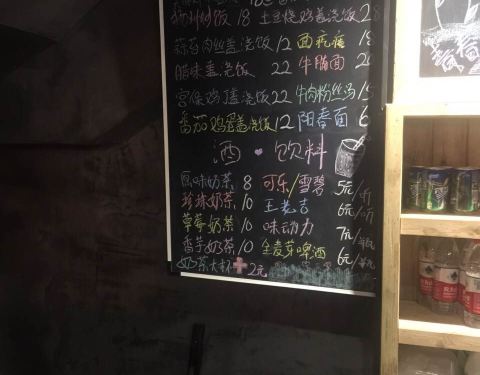 饭 18 土豆烧鸡盖浇饭 28
蒜苔肉丝盖浇饭 12 面疙瘩 18
腊味盖浇饭 22 牛腩面
宫保鸡丁盖浇饭 22 牛肉粉丝汤 15
番茄鸡蛋盖浇饭 12 阳春面 6
酒·饮料
原味奶茶 8 可乐/雪碧 5元/听
珍珠奶茶 10 王老吉 6元/听
草莓奶茶 10 味动力 7元/瓶
香芋奶茶 10 全麦芽啤酒 6元/瓶
奶茶大杯+2元